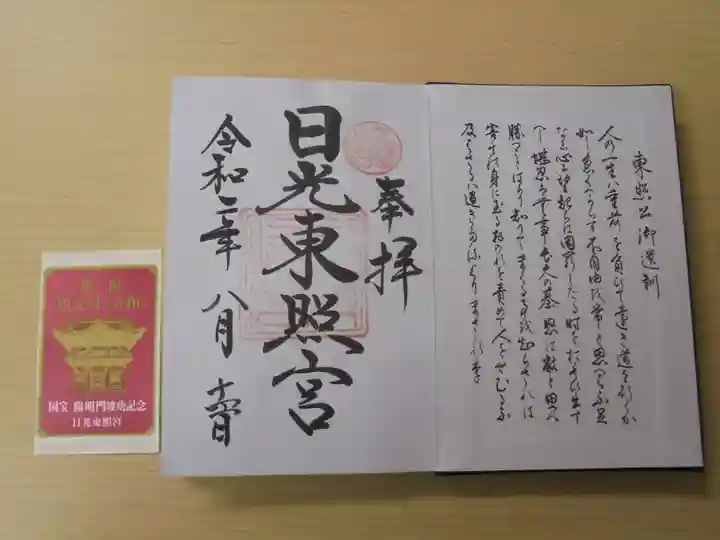 東照公御遺訓
人の一生は重荷を負ひて遠き道を行くか
如し急くへからす不自由を常と思へは不足
なし心に望起らは困窮したる時を思ひ出す
へし堪忍は無事長久の基怒は敵と思へ
勝つことはかり知りてまくることを知らされは
害其の身に至るおのれを責めて人をせむるな
及はさるは過きたるよりまされり
奉拝
日光東照宮
令和 年八月 日
奉祝
国宝 陽明門竣功記念
日光東照宮